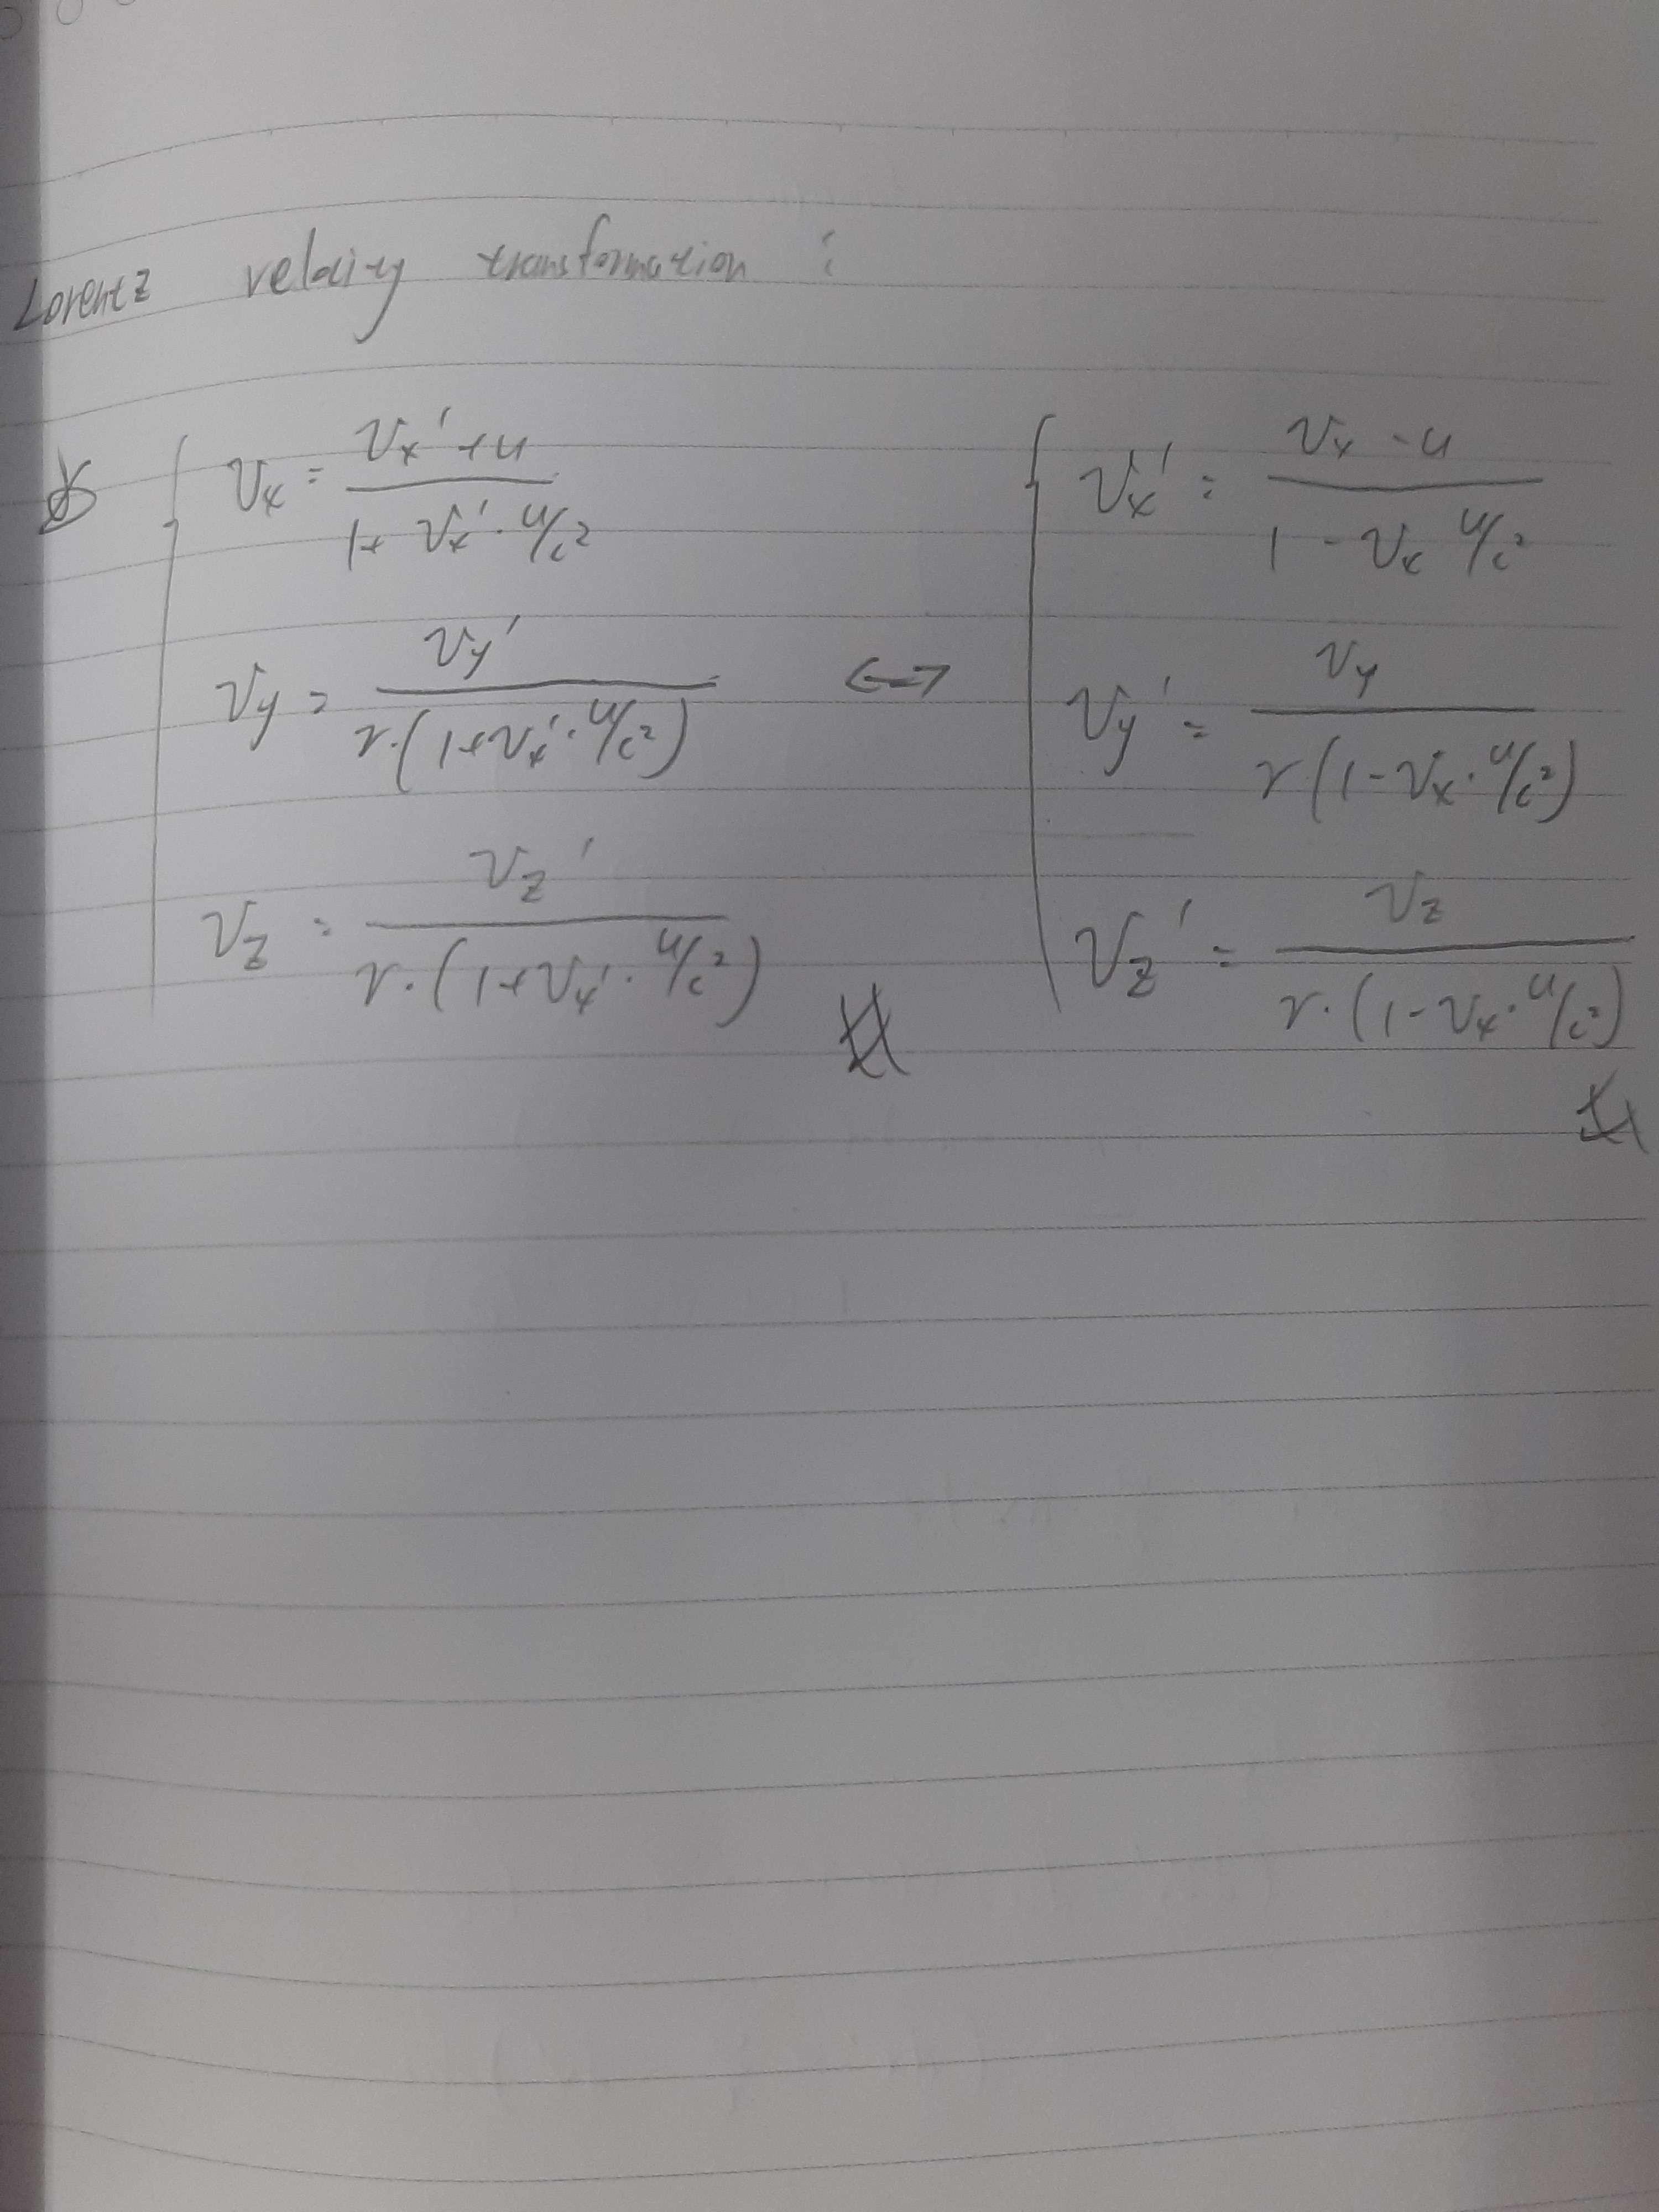 Lorentz velocity transformation :
Vx = Vx' + u / 1 + Vx' · u/c²
Vy = Vy' / γ · (1 + Vx' · u/c²)
Vz = Vz' / γ · (1 + Vx' · u/c²)
↔
Vx' = Vx - u / 1 - Vx u/c²
Vy' = Vy / γ (1 - Vx · u/c²)
Vz' = Vz / γ · (1 - Vx · u/c²)